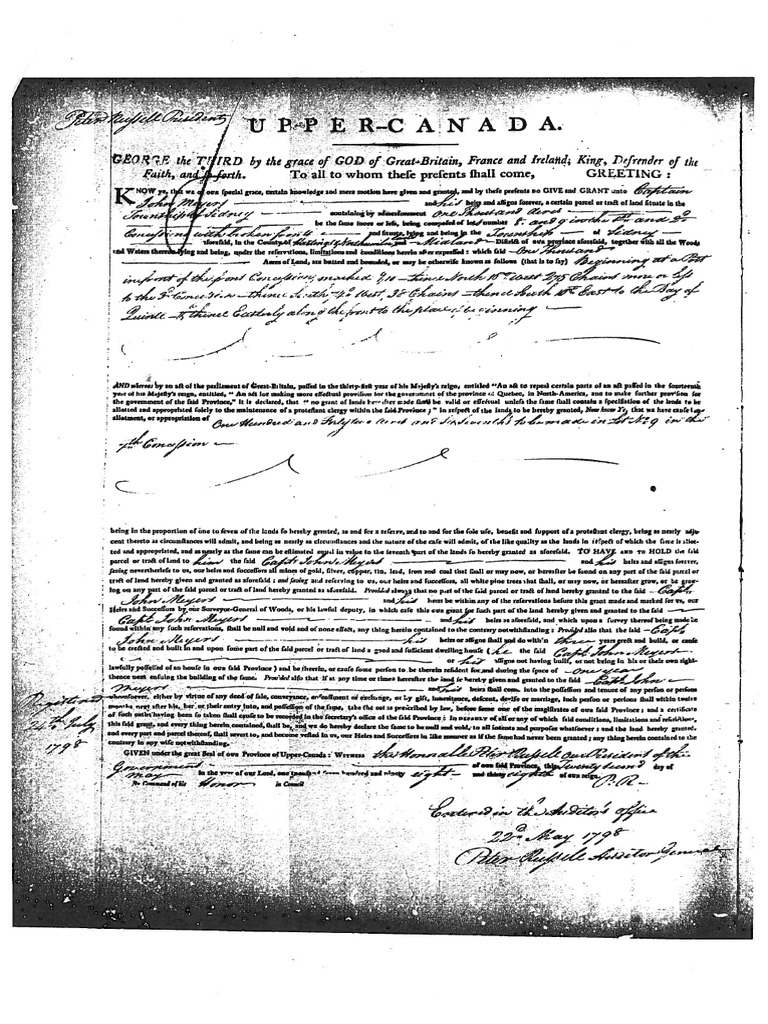 Peter Russell President
UPPER-CANADA.
GEORGE the THIRD by the grace of GOD of Great-Britain, France and Ireland; King, Defender of the
Faith, and so forth. To all to whom these presents shall come, GREETING:
KNOW ye, that we of our special grace, certain knowledge and mere motion have given and granted, and by these presents DO GIVE and GRANT unto Captain
John Meyers and his heirs and assigns forever, a certain parcel or tract of land situate in the
Township of Sidney containing by admeasurement One Thousand Acres
be the same more or less, being composed of lots number 8 and 9 in the 1st and 2d
Concessions with broken fronts and situate lying and being in the Township of Sidney
aforesaid, in the County of Northumberland Midland District of our province aforesaid, together with all the Woods
and Waters thereon lying and being, under the reservations, limitations and conditions herein after expressed: which said One Thousand
Acres of Land, are butted and bounded, or may be otherwise known as follows (that is to say) Beginning at a Post
in front of the front Concession, marked 9/10 thence North 16° West 275 Chains more or less
to the 3d Concession thence South 74° West, 38 Chains thence South 16° East to the Bay of
Quinté thence Easterly along the front to the place of beginning
AND whereas by an act of the parliament of Great-Britain, passed in the thirty-first year of his Majesty's reign, entitled "An act to repeal certain parts of an act passed in the fourteenth
year of his Majesty's reign, entitled, "An act for making more effectual provision for the government of the province of Quebec, in North-America, and to make further provision for
the government of the said Province," It is declared, that "no grant of lands hereafter made shall be valid or effectual unless the same shall contain a specification of the lands to be
allotted and appropriated solely to the maintenance of a protestant clergy within the said Province;" in respect of the lands to be hereby granted, Now know Ye, that we have caused an
allotment, or appropriation of One Hundred and Forty two Acres and Six Sevenths to be made in Lot No 9 in the
7th Concession
being in the proportion of one to seven of the lands so hereby granted, as and for a reserve, and to and for the sole use, benefit and support of a protestant clergy, being as nearly adja-
cent thereto as circumstances will admit, and being as nearly as circumstances and the nature of the case will admit, of the like quality as the lands in respect of which the same is allot-
ted and appropriated, and as nearly as the same can be estimated equal in value to the seventh part of the lands so hereby granted as aforesaid. TO HAVE AND TO HOLD the said
parcel or tract of land to him the said Capt John Meyers and his heirs and assigns forever,
saving nevertheless to us, our heirs and successors all mines of gold, silver, copper, tin, lead, iron and coal that shall or may now, or hereafter be found on any part of the said parcel or
tract of land hereby given and granted as aforesaid; and saving and reserving to us, our heirs and successors, all white pine trees that shall, or may now, or hereafter grow, or be grow-
ing on any part of the said parcel or tract of land hereby granted as aforesaid. Provided always that no part of the parcel or tract of land hereby granted to the said Capt.
John Meyers and his heirs be within any of the reservations before this grant made and marked for us, our
Heirs and Successors by our Surveyor-General of Woods, or his lawful deputy, in which case this our grant for such part of the land hereby given and granted to the said
Capt John Meyers and his heirs as aforesaid, and which upon a survey thereof being made be
found within any such reservations, shall be null and void and of none effect, any thing herein contained to the contrary notwithstanding: Provided also that the said Capt
John Meyers his heirs or assigns shall and do within three years erect and build, or cause
to be erected and built in and upon some part of the said parcel or tract of land a good and sufficient dwelling house (he the said Capt John Meyers
or his assigns not having built, or not being in his or their own right
lawfully possessed of an house in our said Province) and be therein, or cause some person to be therein resident for and during the space of one year
thence next ensuing the building of the same. Provided also that if at any time or times hereafter the land so hereby given and granted to the said Capt John
Meyers and his heirs shall come into the possession and tenure of any person or persons
whomsoever, either by virtue of any deed of sale, conveyance, enfeoffment or exchange, or by gift, inheritance, descent, devise or marriage, such person or persons shall within twelve
months next after his, her or their entry into, and possession of the same, take the oaths prescribed by law, before some one of the magistrates of our said Province; and a certificate
of such oaths having been so taken shall cause to be recorded in the secretary's office of the said Province: In DEFAULT of all or any of which said conditions, limitations and restrictions,
this said grant, and every thing herein contained, shall be, and we do hereby declare the same to be null and void, to all intents and purposes whatsoever; and the land hereby granted,
and every part and parcel thereof, shall revert to, and become vested in us, our Heirs and Successors in like manner as if the same had never been granted; any thing herein contained to the
contrary in any wise notwithstanding.
Registered
July
1798
GIVEN under the great Seal of our Province of Upper-Canada: WITNESS the Honorable Peter Russell our President of the
Government of our said Province, this Twenty second day of
May in the year of our Lord, one thousand seven hundred and ninety eight and thirty eighth of our reign. P. R
By Command of his Honor in Council
Entered in the Auditor's office
22d May 1798
Peter Russell Auditor General